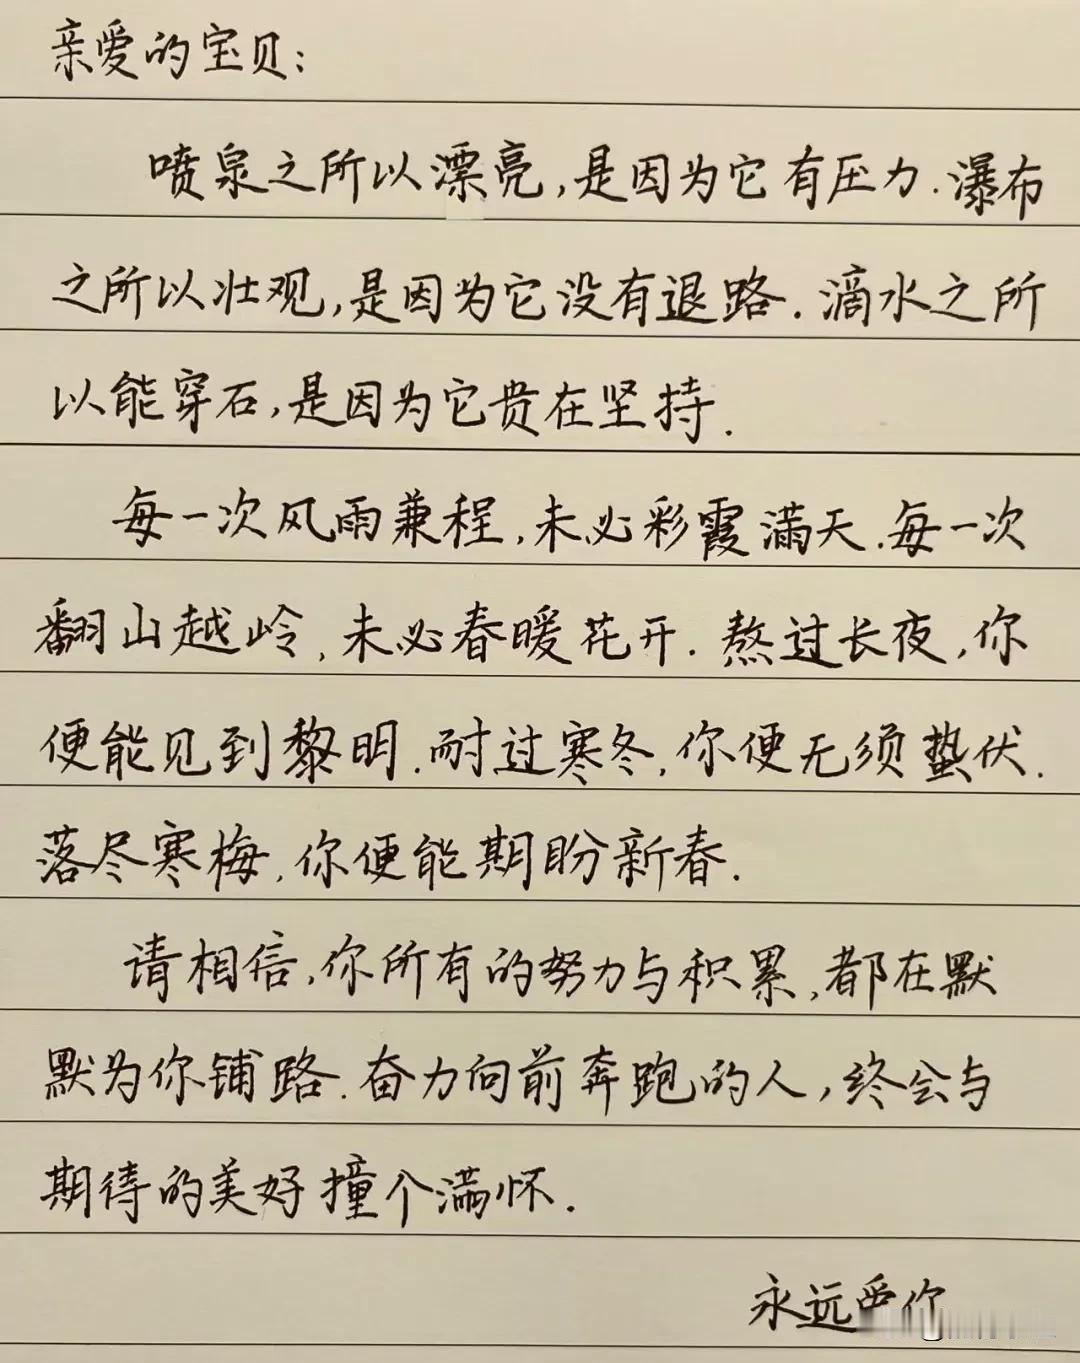 亲爱的宝贝:
喷泉之所以漂亮,是因为它有压力.瀑布
之所以壮观,是因为它没有退路.滴水之所
以能穿石,是因为它贵在坚持.
每一次风雨兼程,未必彩霞满天.每一次
翻山越岭,未必春暖花开.熬过长夜,你
便能见到黎明.耐过寒冬,你便无须蛰伏.
落尽寒梅,你便能期盼新春.
请相信,你所有的努力与积累,都在默
默为你铺路.奋力向前奔跑的人,终会与
期待的美好撞个满怀.
永远爱你